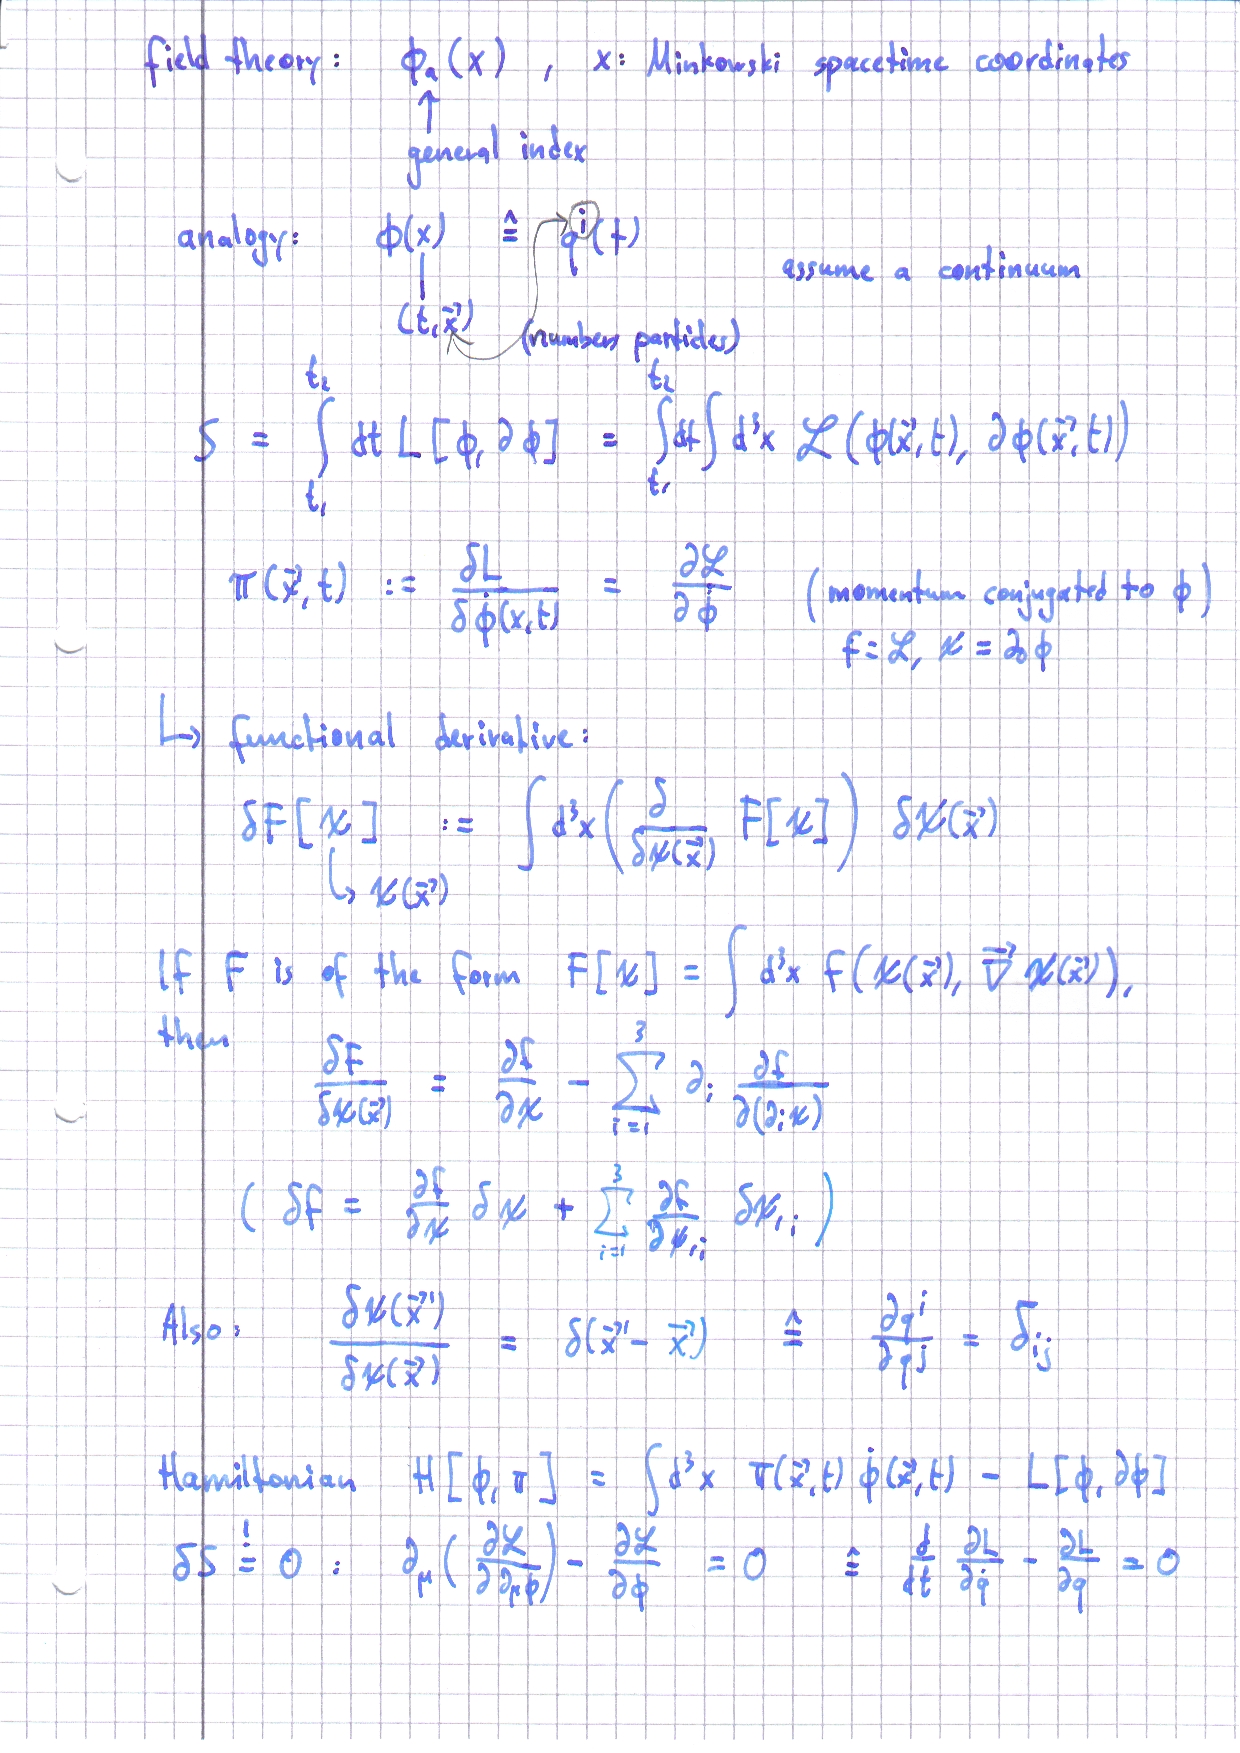 field theory: ϕₐ(x) , x: Minkowski spacetime coordinates
↑
general index
analogy: ϕ(x) ≙ qⁱ(t)
assume a continuum
(t, x⃗) (numbers particles)
S = ∫_{t₁}^{t₂} dt L[ϕ, ∂ϕ] = ∫_{t₁}^{t₂} dt ∫ d³x ℒ(ϕ(x⃗,t), ∂ϕ(x⃗,t))
π(x⃗,t) := δL/δϕ̇(x,t) = ∂ℒ/∂ϕ̇ (momentum conjugated to ϕ)
f = ℒ, ϰ = ∂₀ϕ
↳ functional derivative:
δF[ϰ] := ∫ d³x (δ/δϰ(x⃗) F[ϰ]) δϰ(x⃗)
↳ ϰ(x⃗)
If F is of the form F[ϰ] = ∫ d³x f(ϰ(x⃗), ∇⃗ϰ(x⃗)),
then δF/δϰ(x⃗) = ∂f/∂ϰ - ∑_{i=1}^{3} ∂ᵢ ∂f/∂(∂ᵢϰ)
( δf = ∂f/∂ϰ δϰ + ∑_{i=1}^{3} ∂f/∂ϰ,ᵢ δϰ,ᵢ )
Also: δϰ(x⃗')/δϰ(x⃗) = δ(x⃗' - x⃗) ≙ ∂qⁱ/∂qʲ = δᵢⱼ
Hamiltonian H[ϕ, π] = ∫ d³x π(x⃗,t) ϕ̇(x⃗,t) - L[ϕ, ∂ϕ]
δS =! 0 : ∂_μ(∂ℒ/∂∂_μϕ) - ∂ℒ/∂ϕ = 0 ≙ d/dt ∂L/∂q̇ - ∂L/∂q = 0